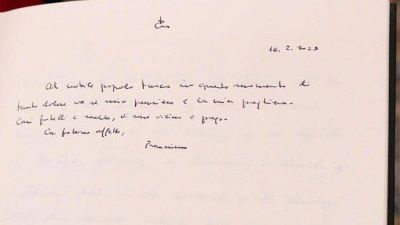 16.2.2023
Al nobile popolo turco in questo momento di
tanto dolore va il mio pensiero e la mia preghiera.
Cari fratelli e sorelle, vi sono vicino e prego.
Con paterno affetto,
Franciscus